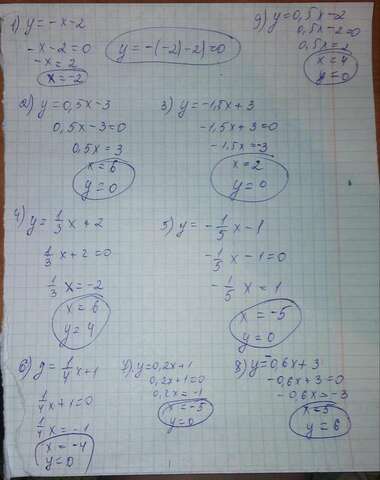 1) y = -x - 2
-x - 2 = 0
-x = 2
x = -2
y = -(-2) - 2) = 0
9) y = 0,5x - 2
0,5x - 2 = 0
0,5x = 2
x = 4
y = 0
2) y = 0,5x - 3
0,5x - 3 = 0
0,5x = 3
x = 6
y = 0
3) y = -1,5x + 3
-1,5x + 3 = 0
-1,5x = -3
x = 2
y = 0
4) y = 1/3 x + 2
1/3 x + 2 = 0
1/3 x = -2
x = 6
y = 4
5) y = -1/5 x - 1
-1/5 x - 1 = 0
-1/5 x = 1
x = -5
y = 0
6) y = 1/4 x + 1
1/4 x + 1 = 0
1/4 x = -1
x = -4
y = 0
7) y = 0,2x + 1
0,2x + 1 = 0
0,2x = -1
x = -5
y = 0
8) y = -0,6x + 3
-0,6x + 3 = 0
-0,6x = -3
x = 5
y = 6